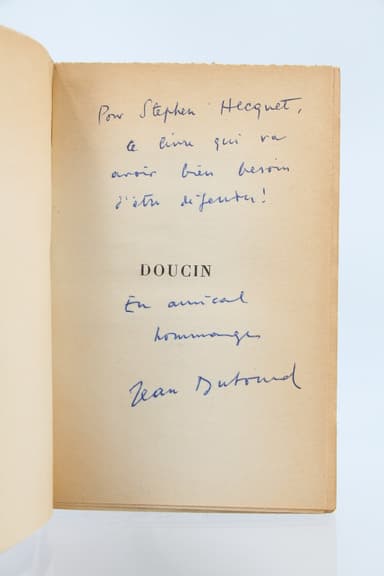 Pour Stephen Hecquet,
ce livre qui va
avoir bien besoin
d'être défendu!
DOUCIN
En amical
hommage
Jean Dutourd